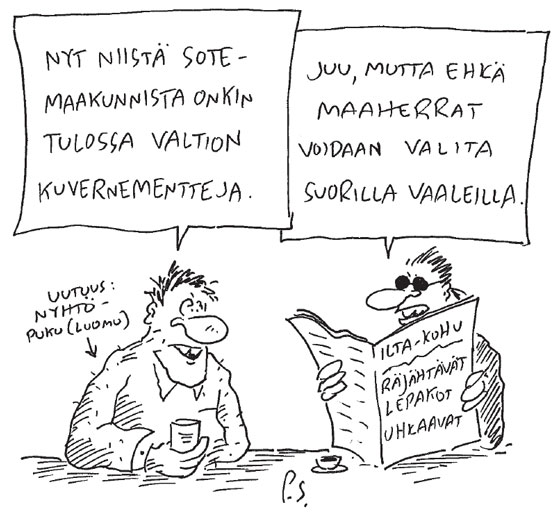 NYT NIISTÄ SOTE-
MAAKUNNISTA ONKIN
TULOSSA VALTION
KUVERNEMENTTEJA.
JUU, MUTTA EHKÄ
MAAHERRAT
VOIDAAN VALITA
SUORILLA VAALEILLA.
UUTUUS:
NYHTÖ-
PUKU (LUOMU)
ILTA-KOHU
RÄJÄHTÄVÄT
LEPAKOT
UHKAAVAT
P.S.